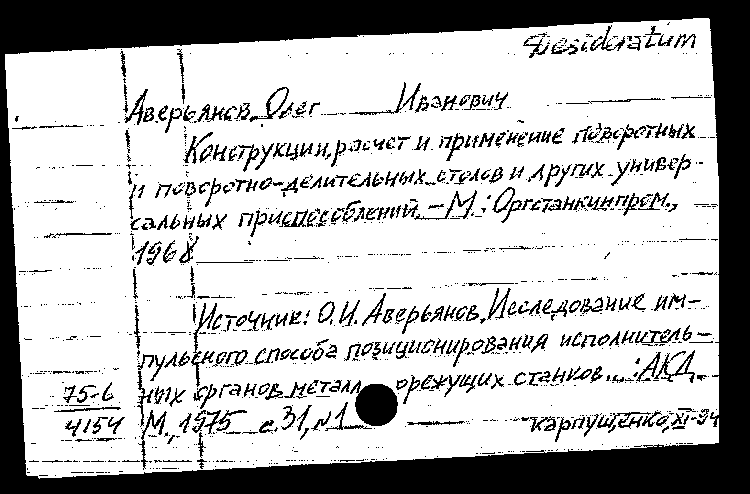 Desideratum
Аверьянов, Олег Иванович
Конструкции, расчет и применение поворотных
и поворотно-делительных столов и других универ-
сальных приспособлений. – М.: Оргстанкинпром,
1968
Источник: О.И. Аверьянов. Исследование им-
пульсного способа позиционирования исполнитель-
ных органов металлорежущих станков...: АКД.
75-6
4154
М., 1975 с. 31, №1
Карпущенко, XI-94